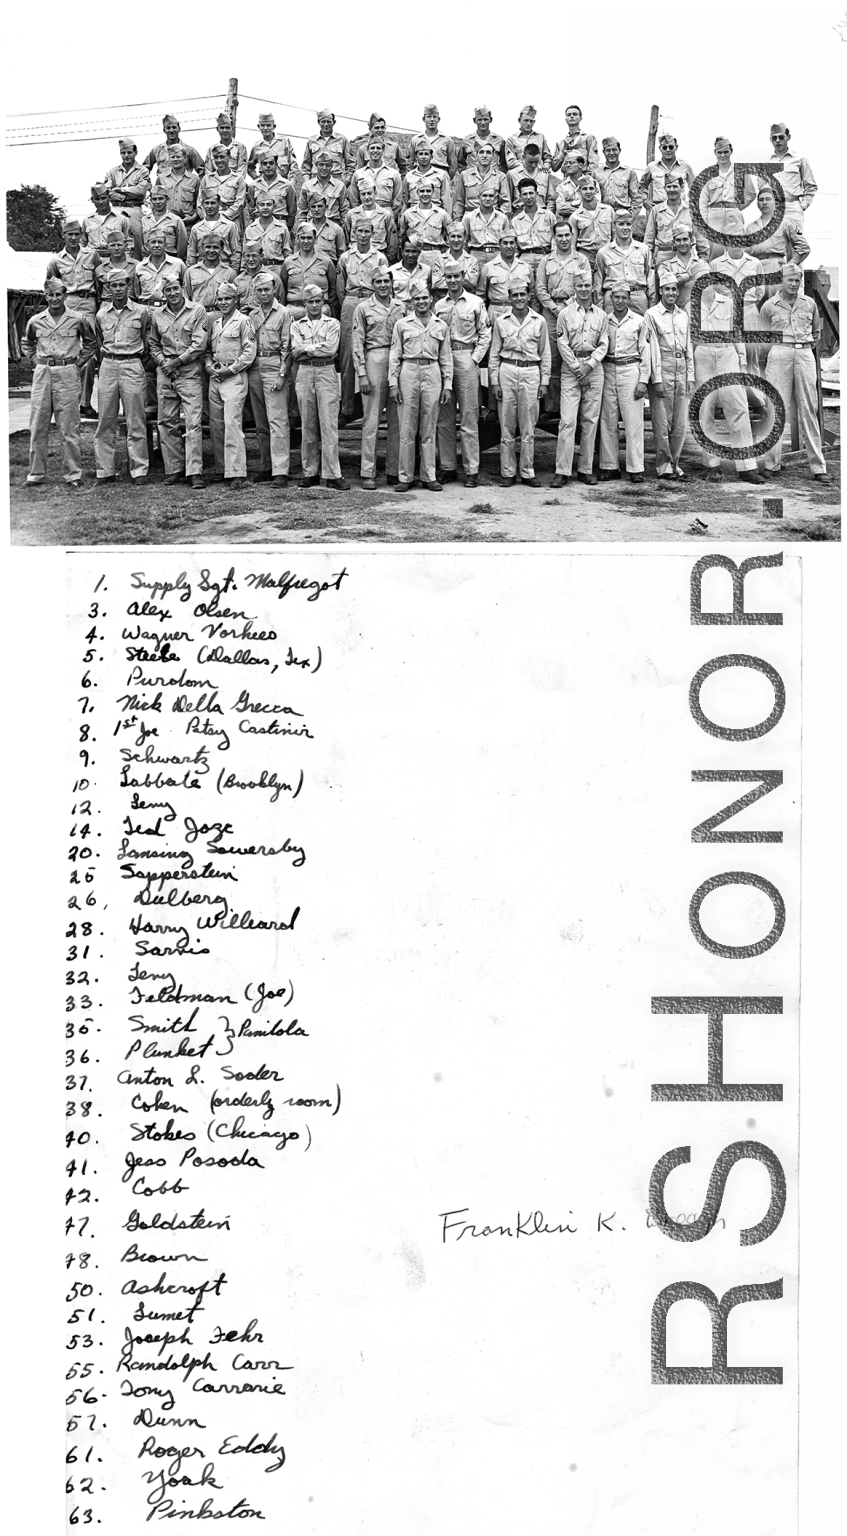 1. Supply Sgt. Malfregot
3. Alex Olsen
4. Wagner Vorhees
5. Steele (Dallas, Tex)
6. Purdom
7. Nick Della Grecca
8. 1st Patsy Castinir
9. Schwartz
10. Labbate (Brooklyn)
12.
14. Ted Joze
20. Lansing Sowersby
25 Sapperstein
26, Dulberg
28. Harry Williard
31. Sarvis
32.
33. Feldman (Joe)
35. Smith
36. Plunket
37. Anton L. Soder
38. Cohen (orderly room)
40. Stokes (Chicago)
41. Jess Posoda
42. Cobb
47. Goldstein
Franklin K.
48. Brown
50. Ashcroft
51. Lumet
53. Joseph Fehr
55. Randolph Carr
56. Tony Carrarie
57. Dunn
61. Roger Eddy
62. York
63. Pinkston
RSHONOR.ORG